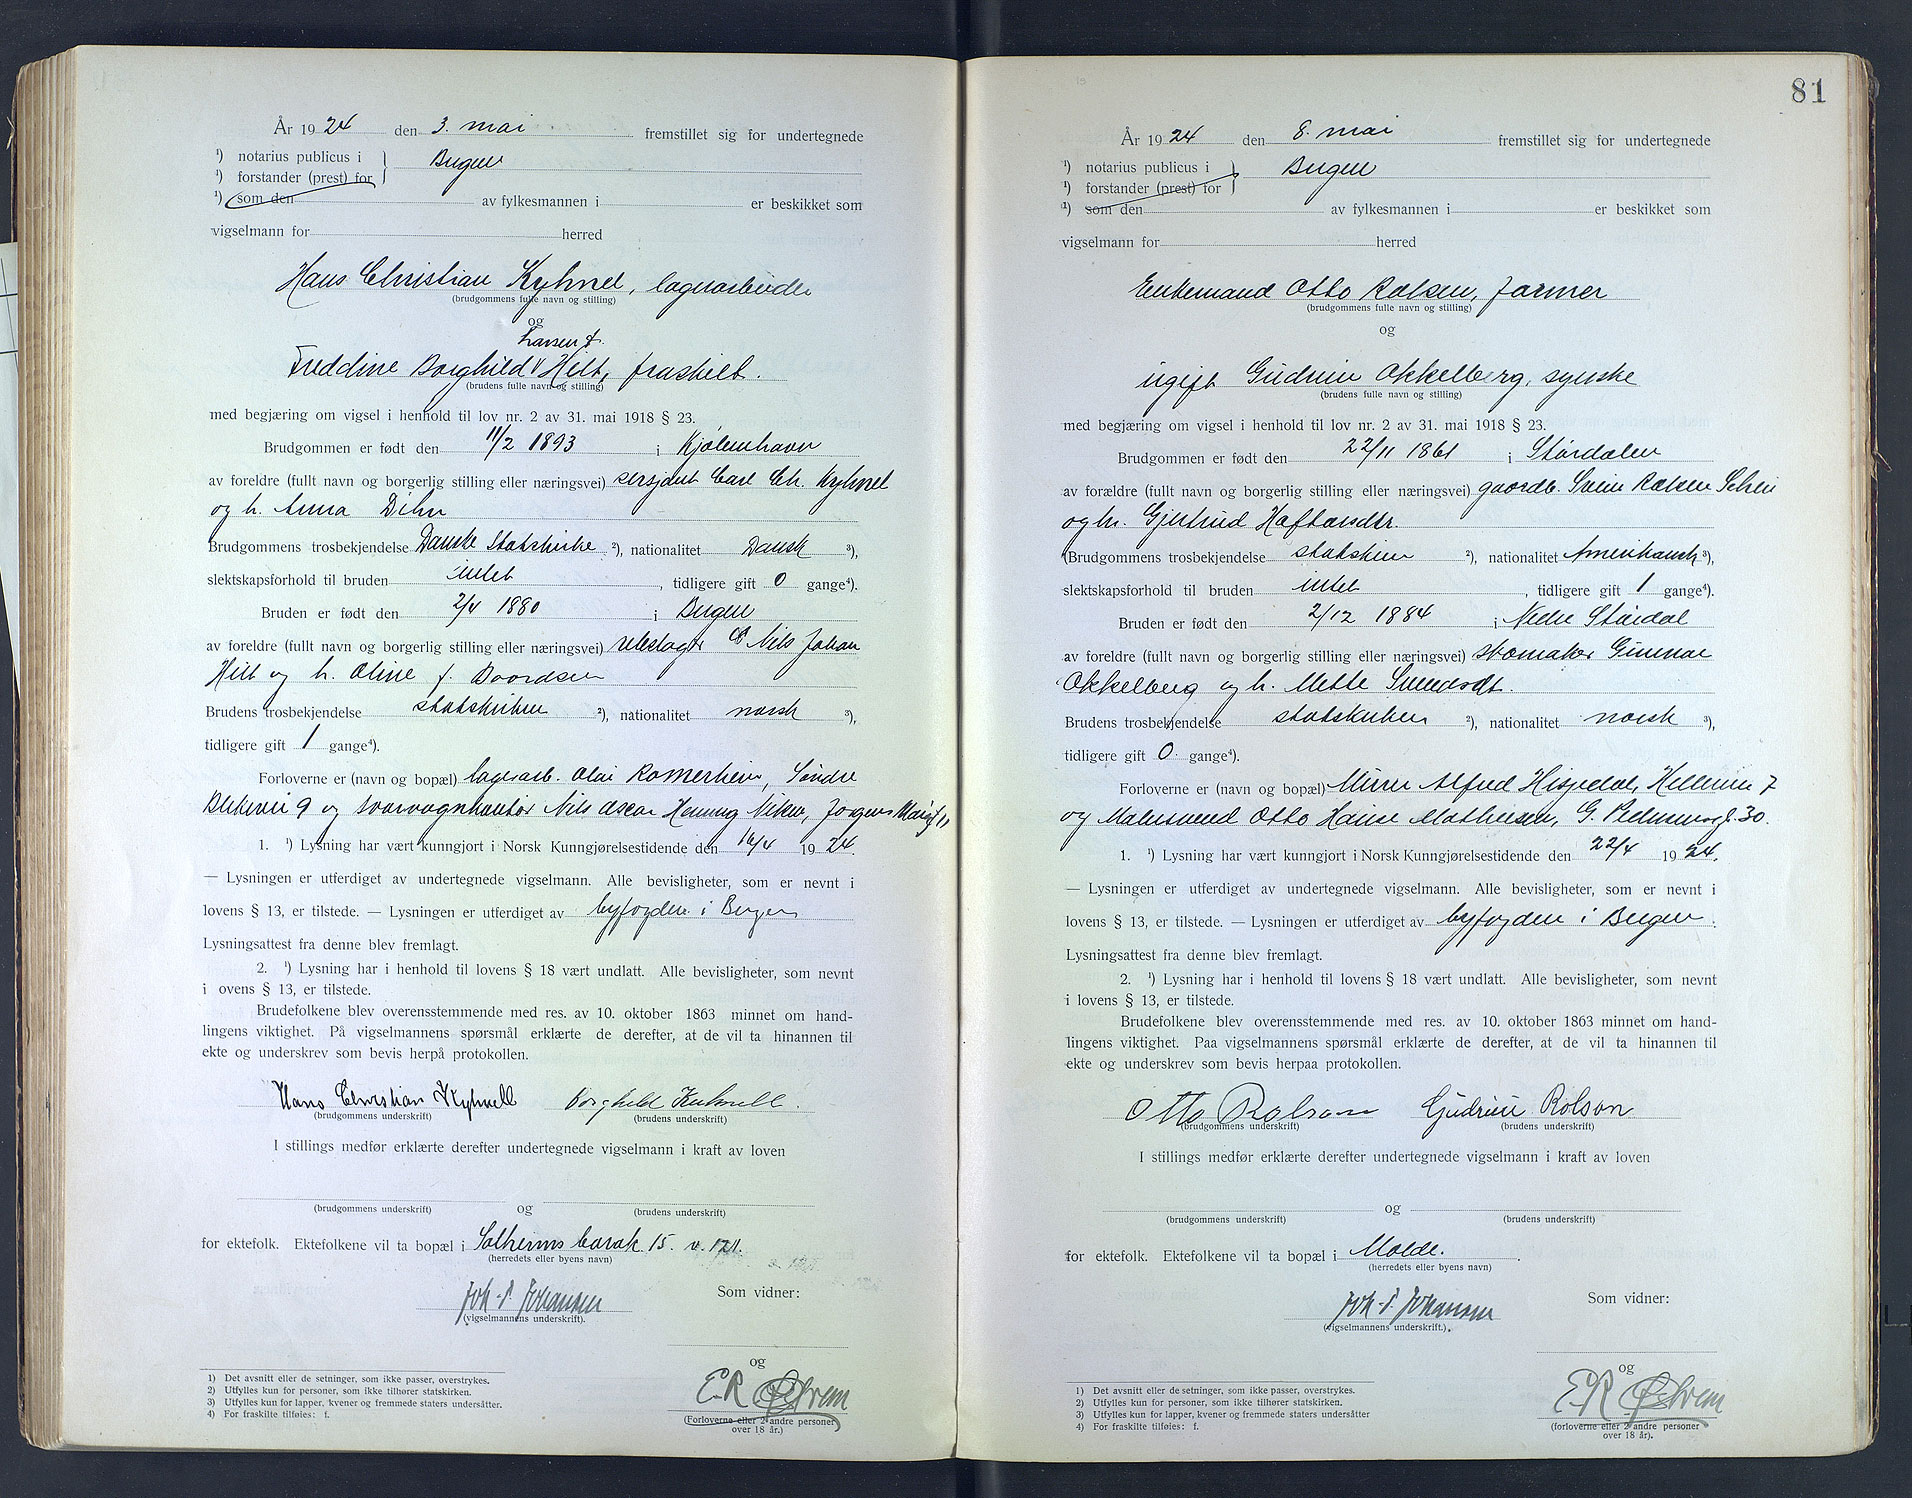 År 1924 den 3. mai fremstillet sig for undertegnede
¹) notarius publicus i } Bergen
¹) forstander (prest) for
¹) som den av fylkesmannen i er beskikket som
vigselmann for herred
Hans Christian Kyhnel, lagerarbeider
(brudgommens fulle navn og stilling)
og
Larsen f.
Freddine Borghild Hilt, fraskilt.
(brudens fulle navn og stilling)
med begjæring om vigsel i henhold til lov nr. 2 av 31. mai 1918 § 23.
Brudgommen er født den 11/2 1893 i Kjøbenhavn
av foreldre (fullt navn og borgerlig stilling eller næringsvei) sersjant Carl Chr. Kyhnel
og h. Anna Dihn
Brudgommens trosbekjendelse Danske Statskirke ²), nationalitet Dansk ³),
slektskapsforhold til bruden intet, tidligere gift 0 gange⁴).
Bruden er født den 2/4 1880 i Bergen
av foreldre (fullt navn og borgerlig stilling eller næringsvei) rebslager Nils Johan
Hilt og h. Oline f. Baardsen
Brudens trosbekjendelse statskirken ²), nationalitet norsk ³),
tidligere gift 1 gange⁴).
Forloverne er (navn og bopæl) lagerarb. Olai Romerheim, Søndre
Blekevei 9 og sporvognkonduktør Nils Oscar Henning
1. ¹) Lysning har vært kunngjort i Norsk Kunngjørelsestidende den 16/4 1924.
— Lysningen er utferdiget av undertegnede vigselmann. Alle bevisligheter, som er nevnt i
lovens § 13, er tilstede. — Lysningen er utferdiget av byfogden i Bergen
Lysningsattest fra denne blev fremlagt.
2. ¹) Lysning har i henhold til lovens § 18 vært undlatt. Alle bevisligheter, som nevnt
i ovens § 13, er tilstede.
Brudefolkene blev overensstemmende med res. av 10. oktober 1863 minnet om hand-
lingens viktighet. På vigselmannens spørsmål erklærte de derefter, at de vil ta hinannen til
ekte og underskrev som bevis herpå protokollen.
Hans Christian Kyhnell Borghild Kuhnell.
(brudgommens underskrift) (brudens underskrift)
I stillings medfør erklærte derefter undertegnede vigselmann i kraft av loven
og
(brudgommens underskrift) (brudens underskrift)
for ektefolk. Ektefolkene vil ta bopæl i Solheims barak 15. v. 121.
(herredets eller byens navn)
Joh. S. Johansen Som vidner:
(vigselmannens underskrift).
og
E R Østrem
(Forloverne eller 2 andre personer
over 18 år.)
1) Det avsnitt eller de setninger, som ikke passer, overstrykes.
2) Utfylles kun for personer, som ikke tilhører statskirken.
3) Utfylles kun for lapper, kvener og fremmede staters undersåtter.
4) For fraskilte tilføies: f.
81
År 1924 den 8. mai fremstillet sig for undertegnede
¹) notarius publicus i } Bergen
¹) forstander (prest) for
¹) som den av fylkesmannen i er beskikket som
vigselmann for herred
Enkemand Otto Rolsen, farmer
(brudgommens fulle navn og stilling)
og
ugift Gudrun Okkelberg, syerske
(brudens fulle navn og stilling)
med begjæring om vigsel i henhold til lov nr. 2 av 31. mai 1918 § 23.
Brudgommen er født den 22/11 1861 i Størdalen
av forældre (fullt navn og borgerlig stilling eller næringsvei) gaardb. Svein Rolsen
og h. Gjertrud Haftorsdtr.
(Brudgommens trosbekjendelse statskirken ²), nationalitet Amerikansk ³),
slektskapsforhold til bruden intet, tidligere gift 1 gange⁴).
Bruden er født den 2/12 1884 i Nedre Størdal
av foreldre (fullt navn og borgerlig stilling eller næringsvei) skomaker Gunnar
Okkelberg og h. Mette
Brudens trosbekjendelse statskirken ²), nationalitet norsk ³),
tidligere gift 0 gange⁴).
Forloverne er (navn og bopæl) Murer Alfred Hisdal, 7
og Malersvend Otto Hauso Mathiesen, G. Pedersensgt. 30.
1. ¹) Lysning har vært kunngjort i Norsk Kunngjørelsestidende den 22/4 1924.
— Lysningen er utferdiget av undertegnede vigselmann. Alle bevisligheter, som er nevnt i
lovens § 13, er tilstede. — Lysningen er utferdiget av byfogden i Bergen.
Lysningsattest fra denne blev fremlagt.
2. ¹) Lysning har i henhold til lovens § 18 vært undlatt. Alle bevisligheter, som nevnt
i lovens § 13, er tilstede.
Brudefolkene blev overensstemmende med res. av 10. oktober 1863 minnet om hand-
lingens viktighet. Paa vigselmannens spørsmål erklærte de derefter, at de vil ta hinannen til
ekte og underskrev som bevis herpaa protokollen.
Otto Rolson Gudrun Rolson
(brudgommens underskrift) (brudens underskrift)
I stillings medfør erklærte derefter undertegnede vigselmann i kraft av loven
og
(brudgommens underskrift) (brudens underskrift)
for ektefolk. Ektefolkene vil ta bopæl i Molde.
(herredets eller byens navn)
Joh. S. Johansen Som vidner:
(vigselmannens underskrift.).
og
E R Østrem
(forloverne eller 2 andre personer
over 18 år).
1) Det avsnitt eller de setninger, som ikke passer, overstrykes.
2) Utfylles kun for personer, som ikke tilhører statskirken.
3) Utfylles kun for lapper, kvener og fremmede staters undersåtter
4) For fraskilte tilføies: f.